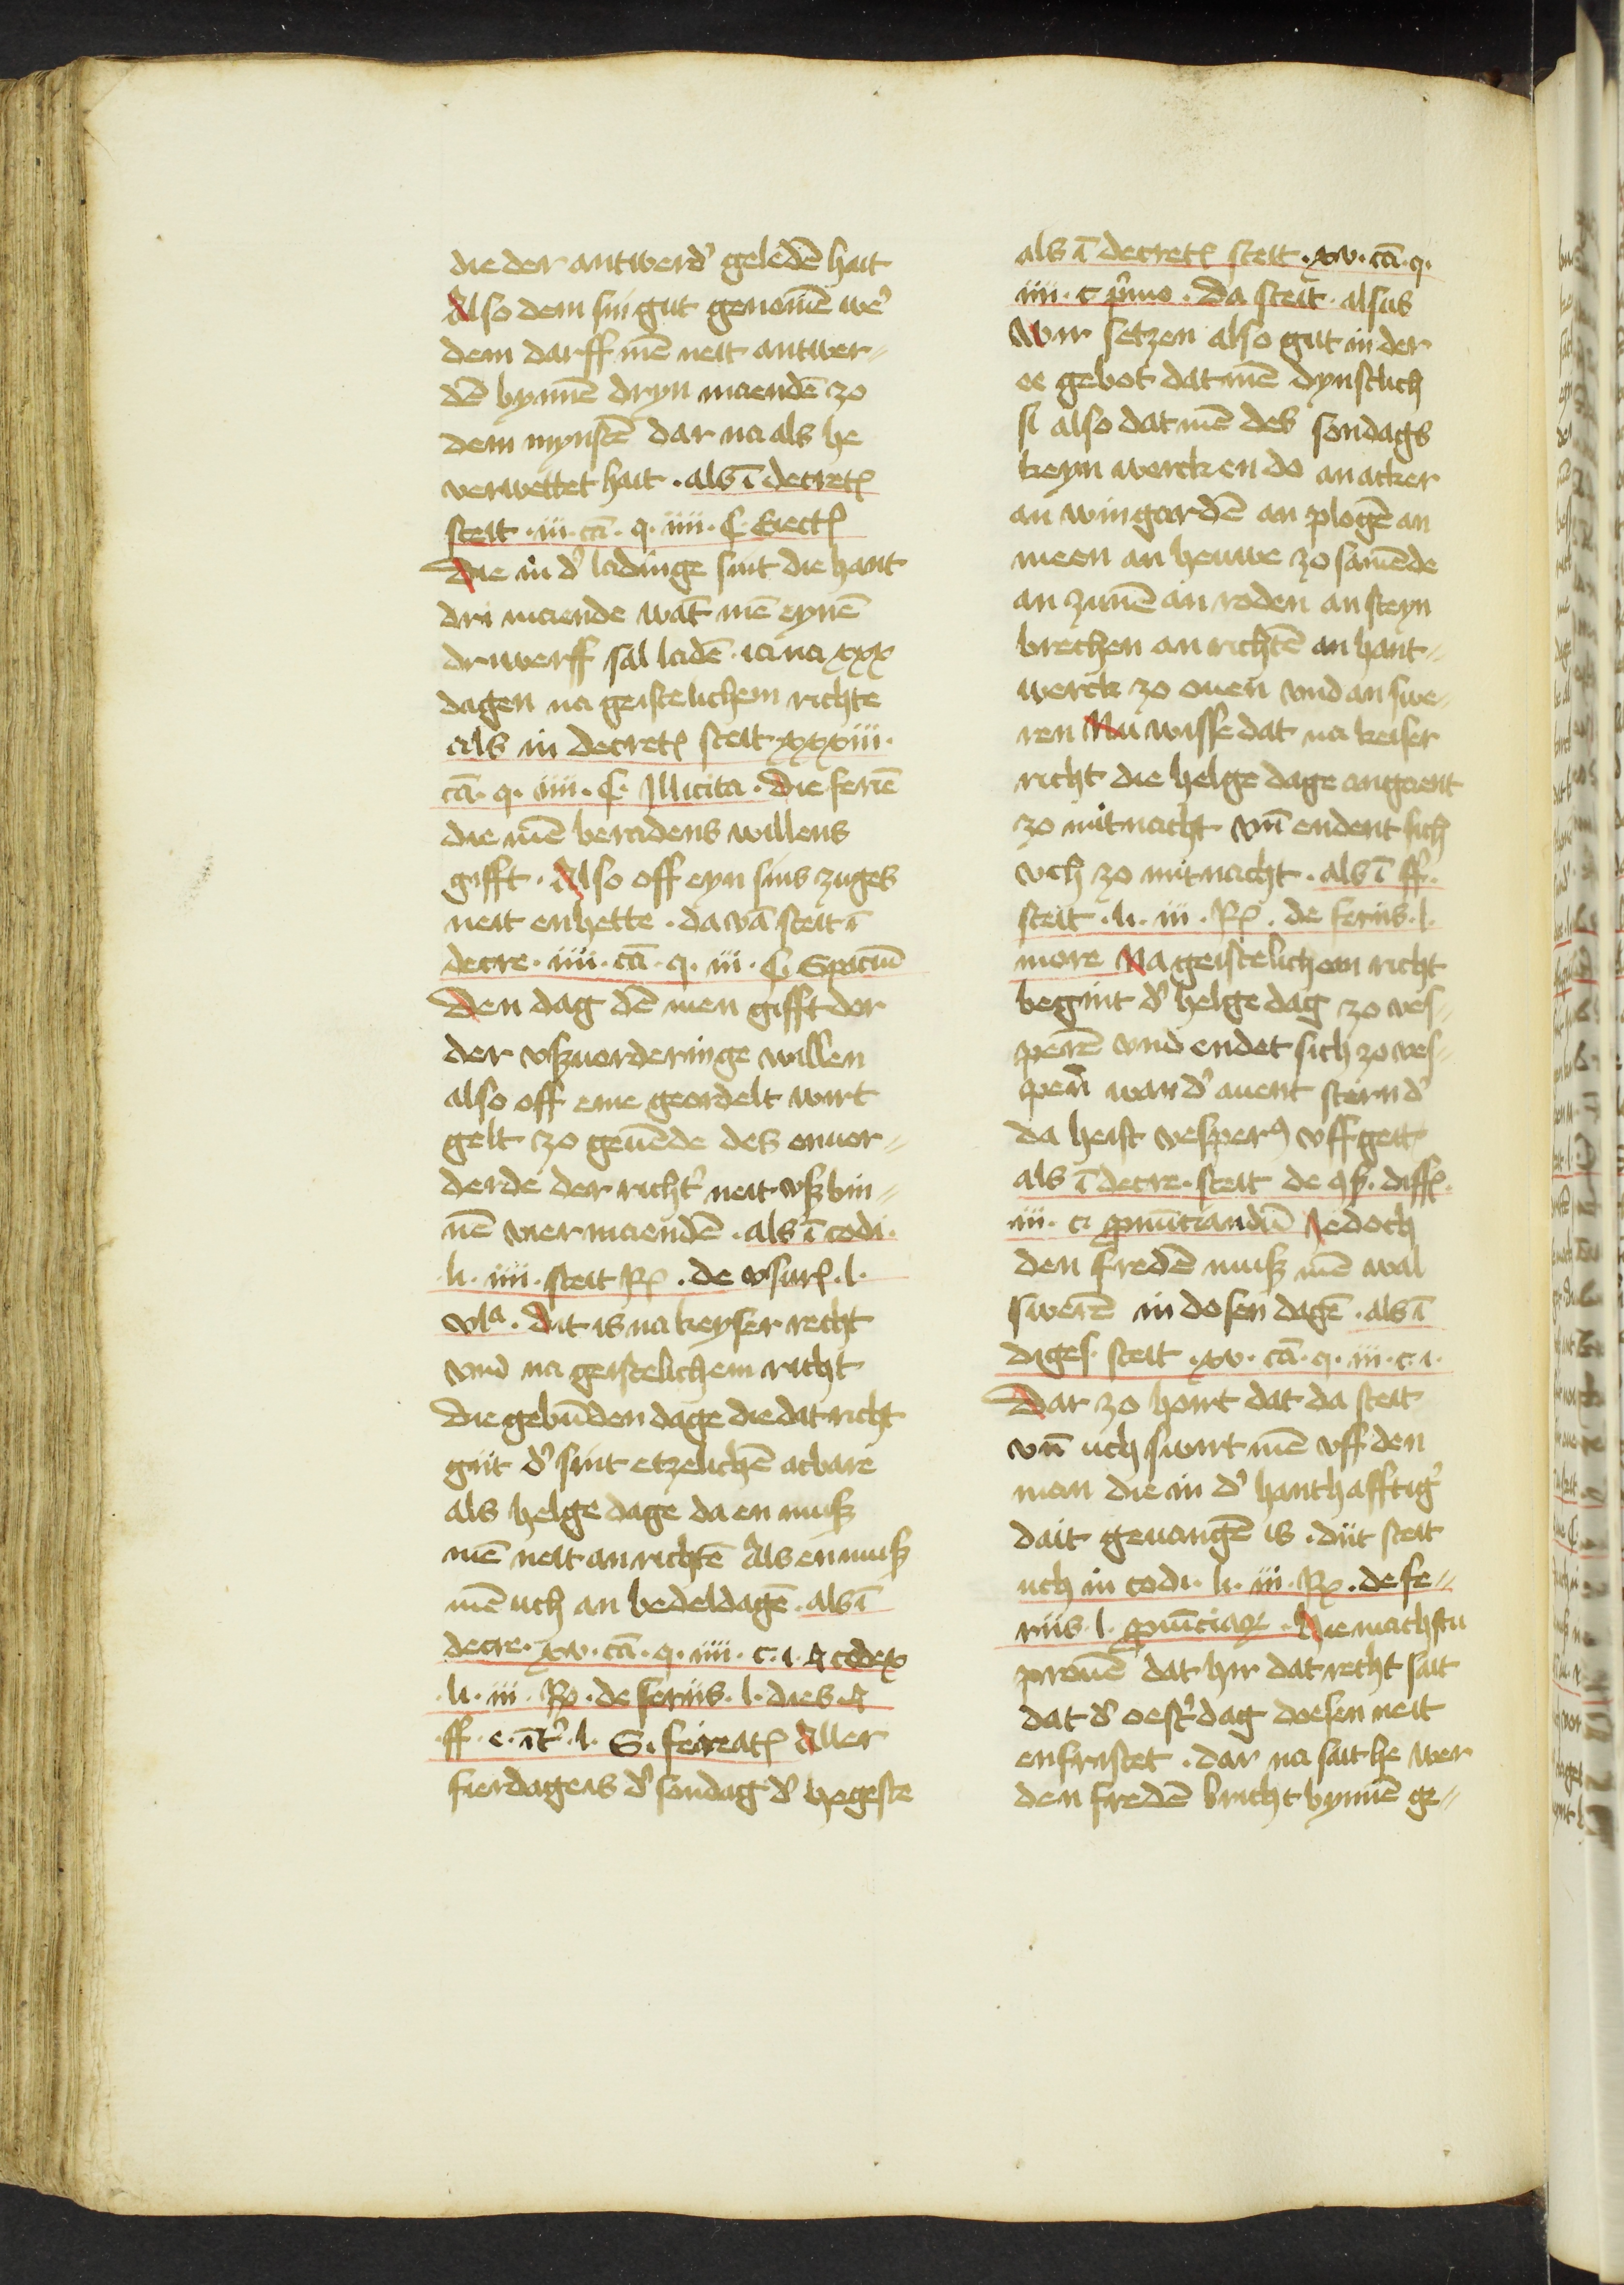 die der antwerd' geledē hait
Also dem sin gut genomē we'
dem darff mē neit antwer=
dē bynnē dryn maendē zo
dem mynstē dar na als he
verwettet hait . als ī decretꝭ
steit . iii . cā . q . iiii . C . Eiectꝭ
Die in d' ladinge sint die hant
dri maende wat mē eynē
driwerff sal ladē . ia na xxx
dagen na geistelichem richte
als in decretꝭ steit xxxiii .
cā . q . iiii . C . Illicita . Die feriē
die mē beradens willens
gifft . Also off eyn sins zuges
neit enhette . da vā steit ī
decre . iiii . cā . q . iii . C . Spaciū
Den dag dē men gifft dor
der vßuorderinge willen
also off eme geordelt wirt
gelt zo geuēde des envor=
derde der richt' neit vß bin=
nē vier maendē . als ī codi .
li . iiii . steit Rꝭ . de vsurꝭ . l .
vla . Dit is na keyser recht
vnd na geistelichem richt
Die gebūden dage die dat richt
giit d' sint etzelichē acbare
als helge dage da en muß
mē neit an richtē Als en muß
mē uch an bedeldagē . als ī
decre . xv . cā . q . iiii . c . i . & codex
. li . iii . Rꝭ . de feriis . l . dies . &
. ff . e . īt' . l . S . feireatꝭ Aller
fierdageis d' sondag d' hegeste
als ī decretꝭ steit . xv . cā . q .
iiii . c p'imo . Da steit alsus
Wir setzen also gut in der
ee gebot dat mē dynstlich
si also dat mē des sondags
keyn werck en do an acker
an wingardē an plogē an
meen an heuwe zo samēde
an zunē an roden an steyn
brechen an richtē an hant=
werck zo ouen vnd an swe=
ren Nu wisse dat na keiser
richt die helge dage angaent
zo mitnacht vn̄ endent sich
vch zo mitnacht . als ī ff .
steit . li . iii . Rꝭ . de feriis . l .
more Na geistelichem richt
begint d' helge dag zo ves=
perē vnd endet sich zo ves=
pen̄ wan d' auent stern d'
da heist vesper9 vff geit
als ī decre . steit de 9ß . diffꝭ .
iii . c . ꝓnūciandū Iedoch
den fredē muß mē wal
swerē in dosen dagē . als ī
diges . steit . xv . cā . q . iii . c . i .
Dar zo hoirt dat da steit
vn̄ uch swirt mē vff den
man die in d' hanthafftig'
dait geuangē is . diit steit
uch in codi . li . iii . Rꝭ . de fe=
riis . l . ꝓnūciaꝝ . Hie machstu
prouē dat hir dat recht sait
dat d' oest'dag doesen neit
enfristet . dar na sait he wer
den fredē bricht bynnē ge=